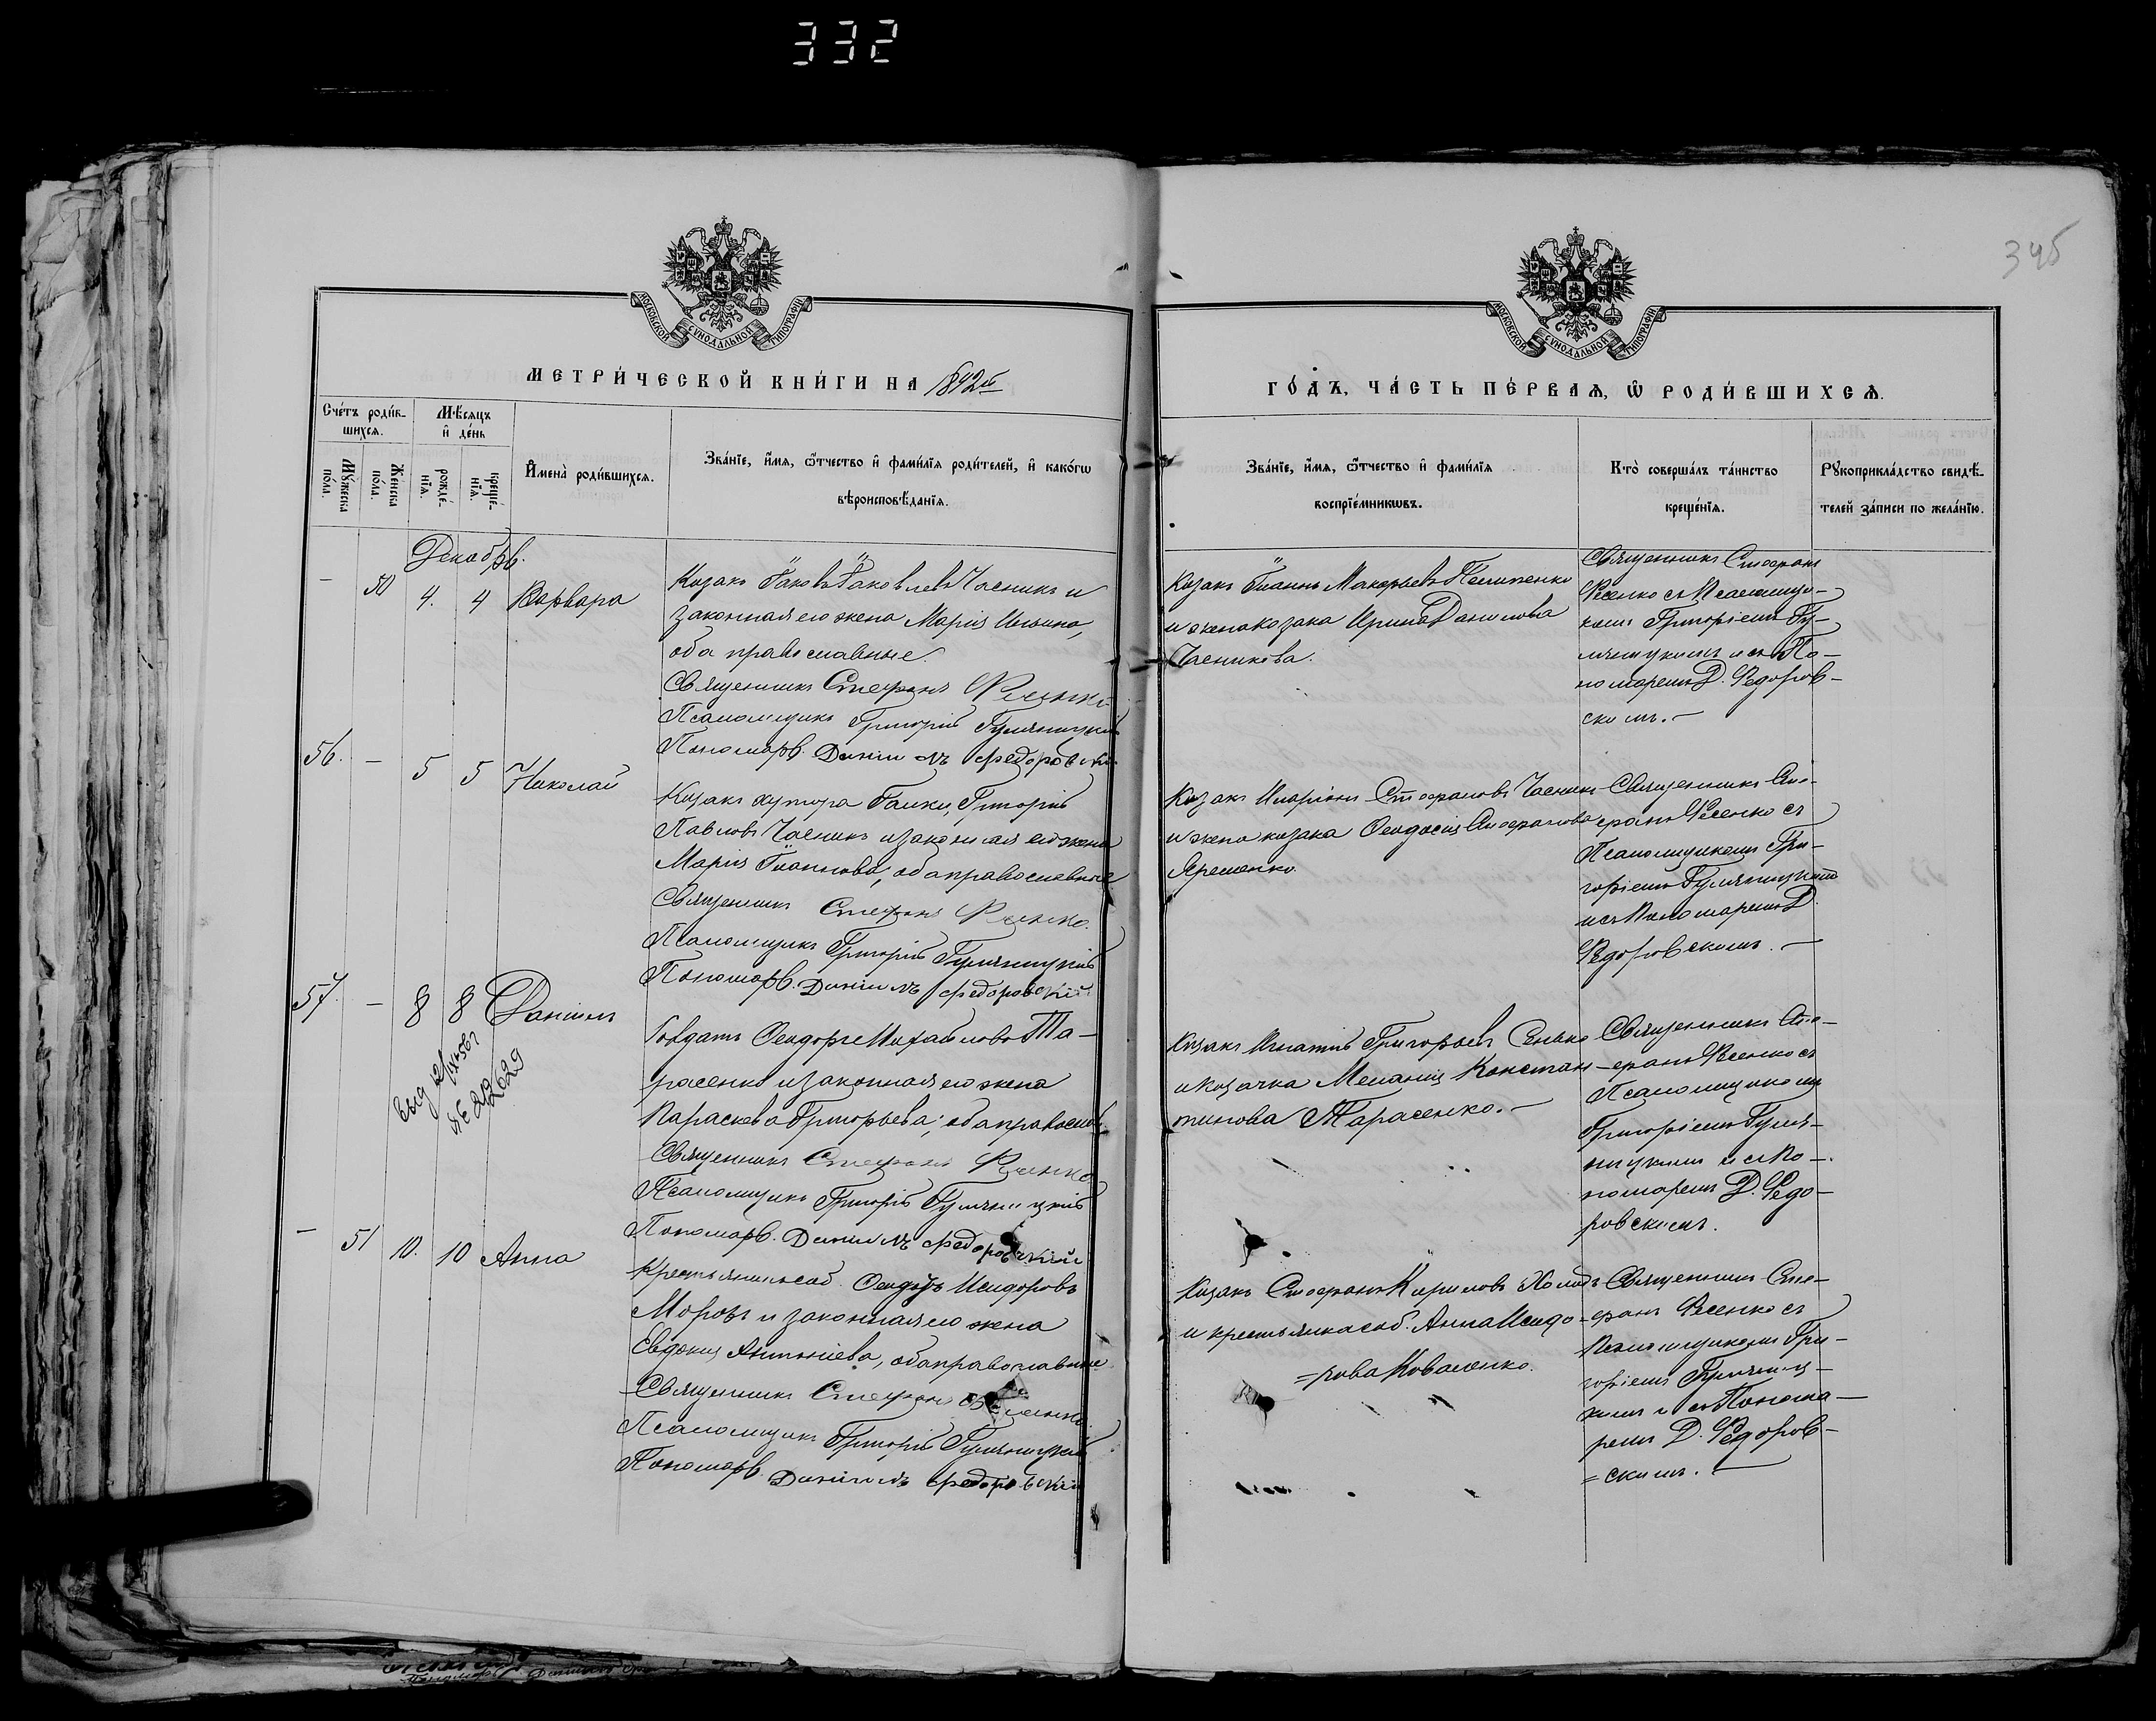 332
345
МОСКОВСКОЙ СѴНОДАЛЬНОЙ ТИПОГРАФІИ
МОСКОВСКОЙ СѴНОДАЛЬНОЙ ТИПОГРАФІИ
МЕТРИ́ЧЕСКОЙ КНИ́ГИ НА 1892й
ГО́ДЪ, ЧА́СТЬ ПЕ́РВАѦ, Ѿ РОДИ́ВШИХСѦ.
Сче́тъ роди́в-
шихсѧ.
Мѣ́сѧцъ
и҆ де́нь
Мꙋ́жеска
по́ла.
Же́нска
по́ла.
рожде́-
нїѧ.
креще́-
нїѧ.
И҆мена̀ роди́вшихсѧ.
Зва́нїе, и҆́мѧ, ѻ҆́тчество и҆ фами́лїѧ роди́телей, и҆ како́гѡ
вѣроисповѣ́данїѧ.
Зва́нїе, и҆́мѧ, ѻ҆́тчество и҆ фами́лїѧ
воспрїе́мникѡвъ.
Кто̀ соверша́лъ та́инство
креще́нїѧ.
Рꙋкоприкла́дство свидѣ́-
телей за́писи по жела́нїю.
Декабрь.
– 50 4. 4 Варвара
Козакъ Іаковъ Іаковлевъ Часникъ и
законная его жена Марія Ильина,
оба православные.
Священникъ Стефанъ Фесенко
Псаломщикъ Григорій Гумяницкій
Пономарь Даніилъ Федоровскій
Козакъ Іоаннъ Макарьевъ Пелипенко
и жена козака Ирина Данилова
Часникова.
Священникъ Стефанъ
Фесенко съ Псаломщи-
комъ Григоріемъ Гу-
мяницкимъ и съ По-
номаремъ Д. Федоров-
скимъ. –
56. – 5 5 Николай
Козакъ хутора Галки, Григорій
Павловъ Часникъ и законная его жена
Марія Іоаннова, оба православные
Священникъ Стефанъ Фесенко.
Псаломщикъ Григорій Гумяницкій
Пономарь. Даніилъ Федоровскій
Козакъ Иларіонъ Стефановъ Часникъ
и жена козака Феодосія Стефанова
Яременко.
Священникъ Сте-
фанъ Фесенко съ
Псаломщикомъ Гри-
горіемъ Гумяницкимъ
и съ Пономаремъ Д.
Федоровскимъ. –
57. – 8 8 Даніилъ
№ 212629
Солдатъ Феодоръ Михайловъ Та-
расенко и законная его жена
Параскева Григорьева, оба правосл.
Священникъ Стефанъ Фесенко
Псаломщикъ Григорій Гумяницкій
Пономарь. Даніилъ Федоровскій
Козакъ Игнатій Григорьевъ Сенько
и козачка Меланія Констан-
тинова Тарасенко. –
Священникъ Сте-
фанъ Фесенко съ
Псаломщикомъ
Григоріемъ Гумя-
ницкимъ и съ По-
номаремъ Д. Федо-
ровскимъ.
– 51 10. 10 Анна
Крестьянинъ соб. Феодоръ Исидоровъ
Морозъ и законная его жена
Евдокія Антоніева, оба православные
Священникъ Стефанъ Фесенко.
Псаломщикъ Григорій Гумяницкій
Пономарь. Даніилъ Федоровскій
Козакъ Стефанъ Кириловъ
и крестьянка соб. Анна Исидо-
=рова Коваленко.
Священникъ Сте-
фанъ Фесенко съ
Псаломщикомъ Гри-
горіемъ Гумяниц-
кимъ и съ Понома-
ремъ Д. Федоров-
=скимъ. –